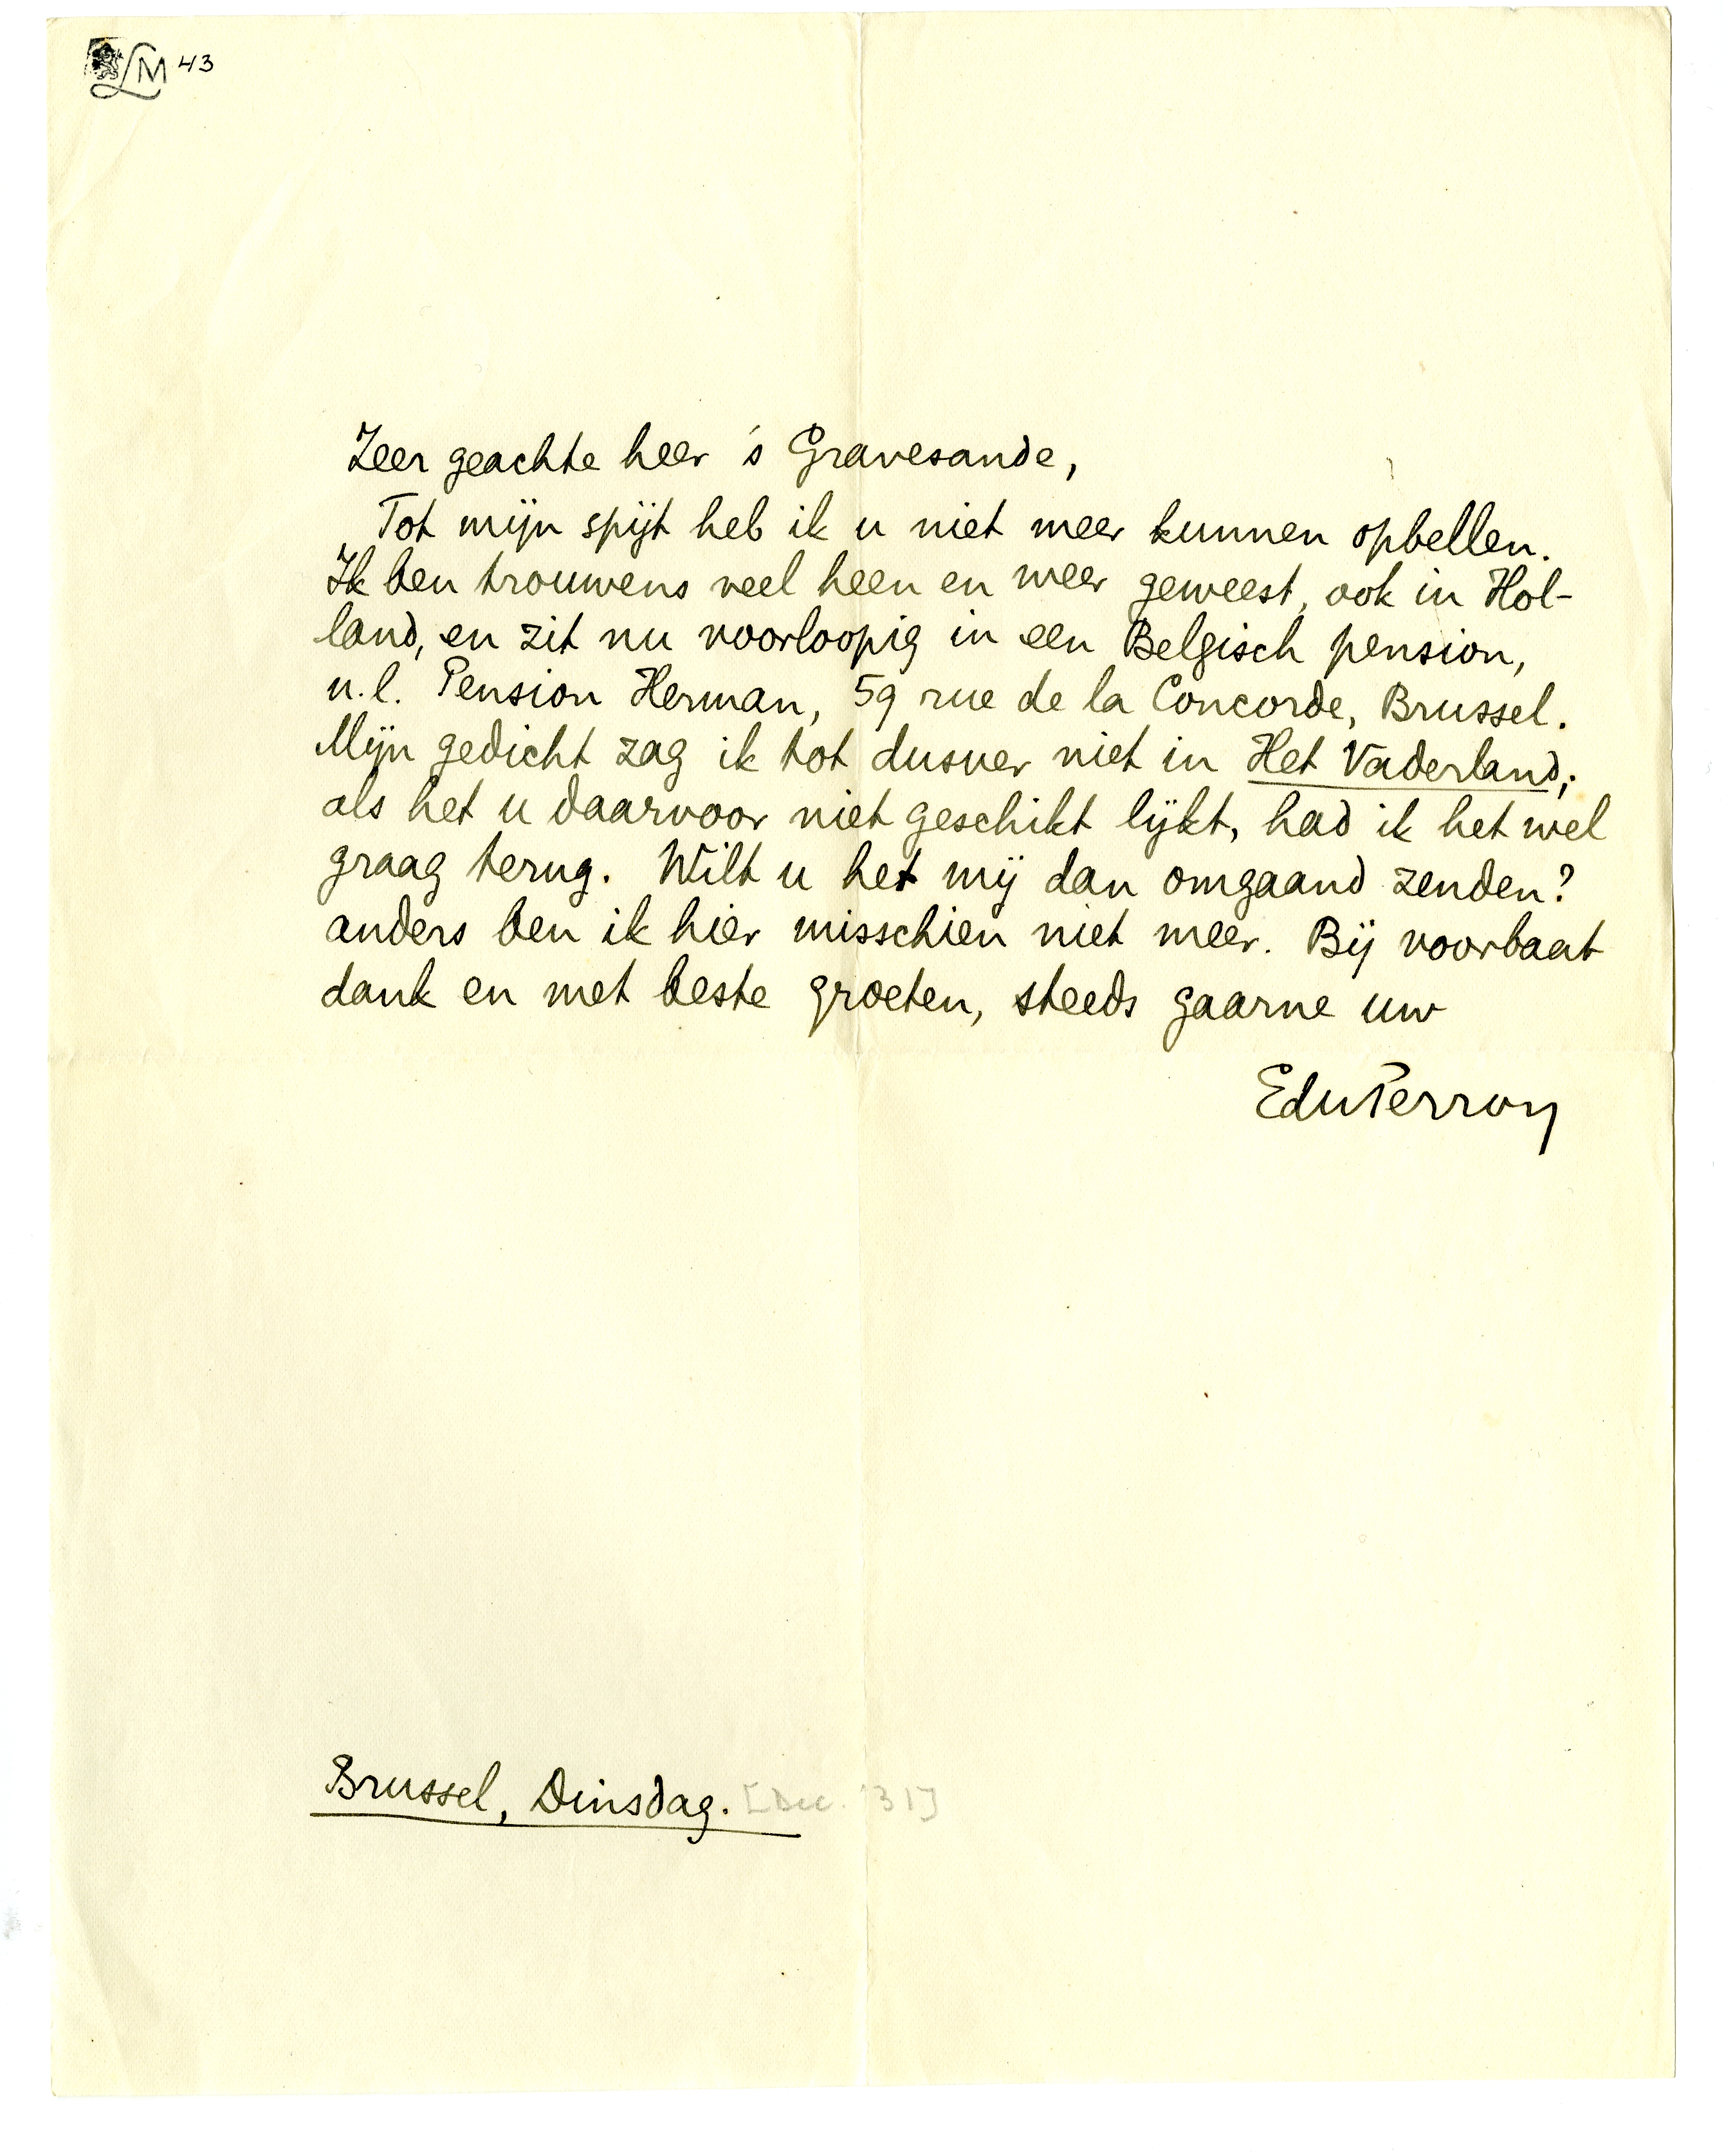 LM 43
Zeer geachte heer 's Gravesande,
Tot mijn spijt heb ik u niet meer kunnen opbellen.
Ik ben trouwens veel heen en weer geweest, ook in Hol-
land, en zit nu voorloopig in een Belgisch pension,
n.l. Pension Herman, 59 rue de la Concorde, Brussel.
Mijn gedicht zag ik tot dusver niet in Het Vaderland;
als het u daarvoor niet geschikt lijkt, had ik het wel
graag terug. Wilt u het mij dan omgaand zenden?
anders ben ik hier misschien niet meer. Bij voorbaat
dank en met beste groeten, steeds gaarne uw
EduPerron
Brussel, Dinsdag. [Dec. '31]